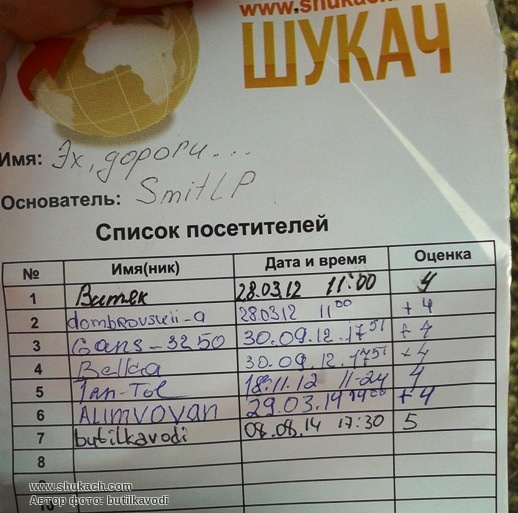 www.shukach
ШУКАЧ
Имя: Эх, дороги...
Основатель: SmitLP
Список посетителей
№ Имя(ник) Дата и время Оценка
1 Витяк 28.03.12 11:00 4
2 dombrovskii-a 280312 11 00 +4
3 Gans-3250 30.09.12. 17 51 +4
4 Bellca 30.09.12. 17 51 +4
5 Tan-Tol 18.11.12 11-24 4
6 ALIMVOVAN 29.03.14 +4
7 butilkavodi 08.08.14 17:30 5
8
9
10
www.shukach.com
Автор фото: butilkavodi